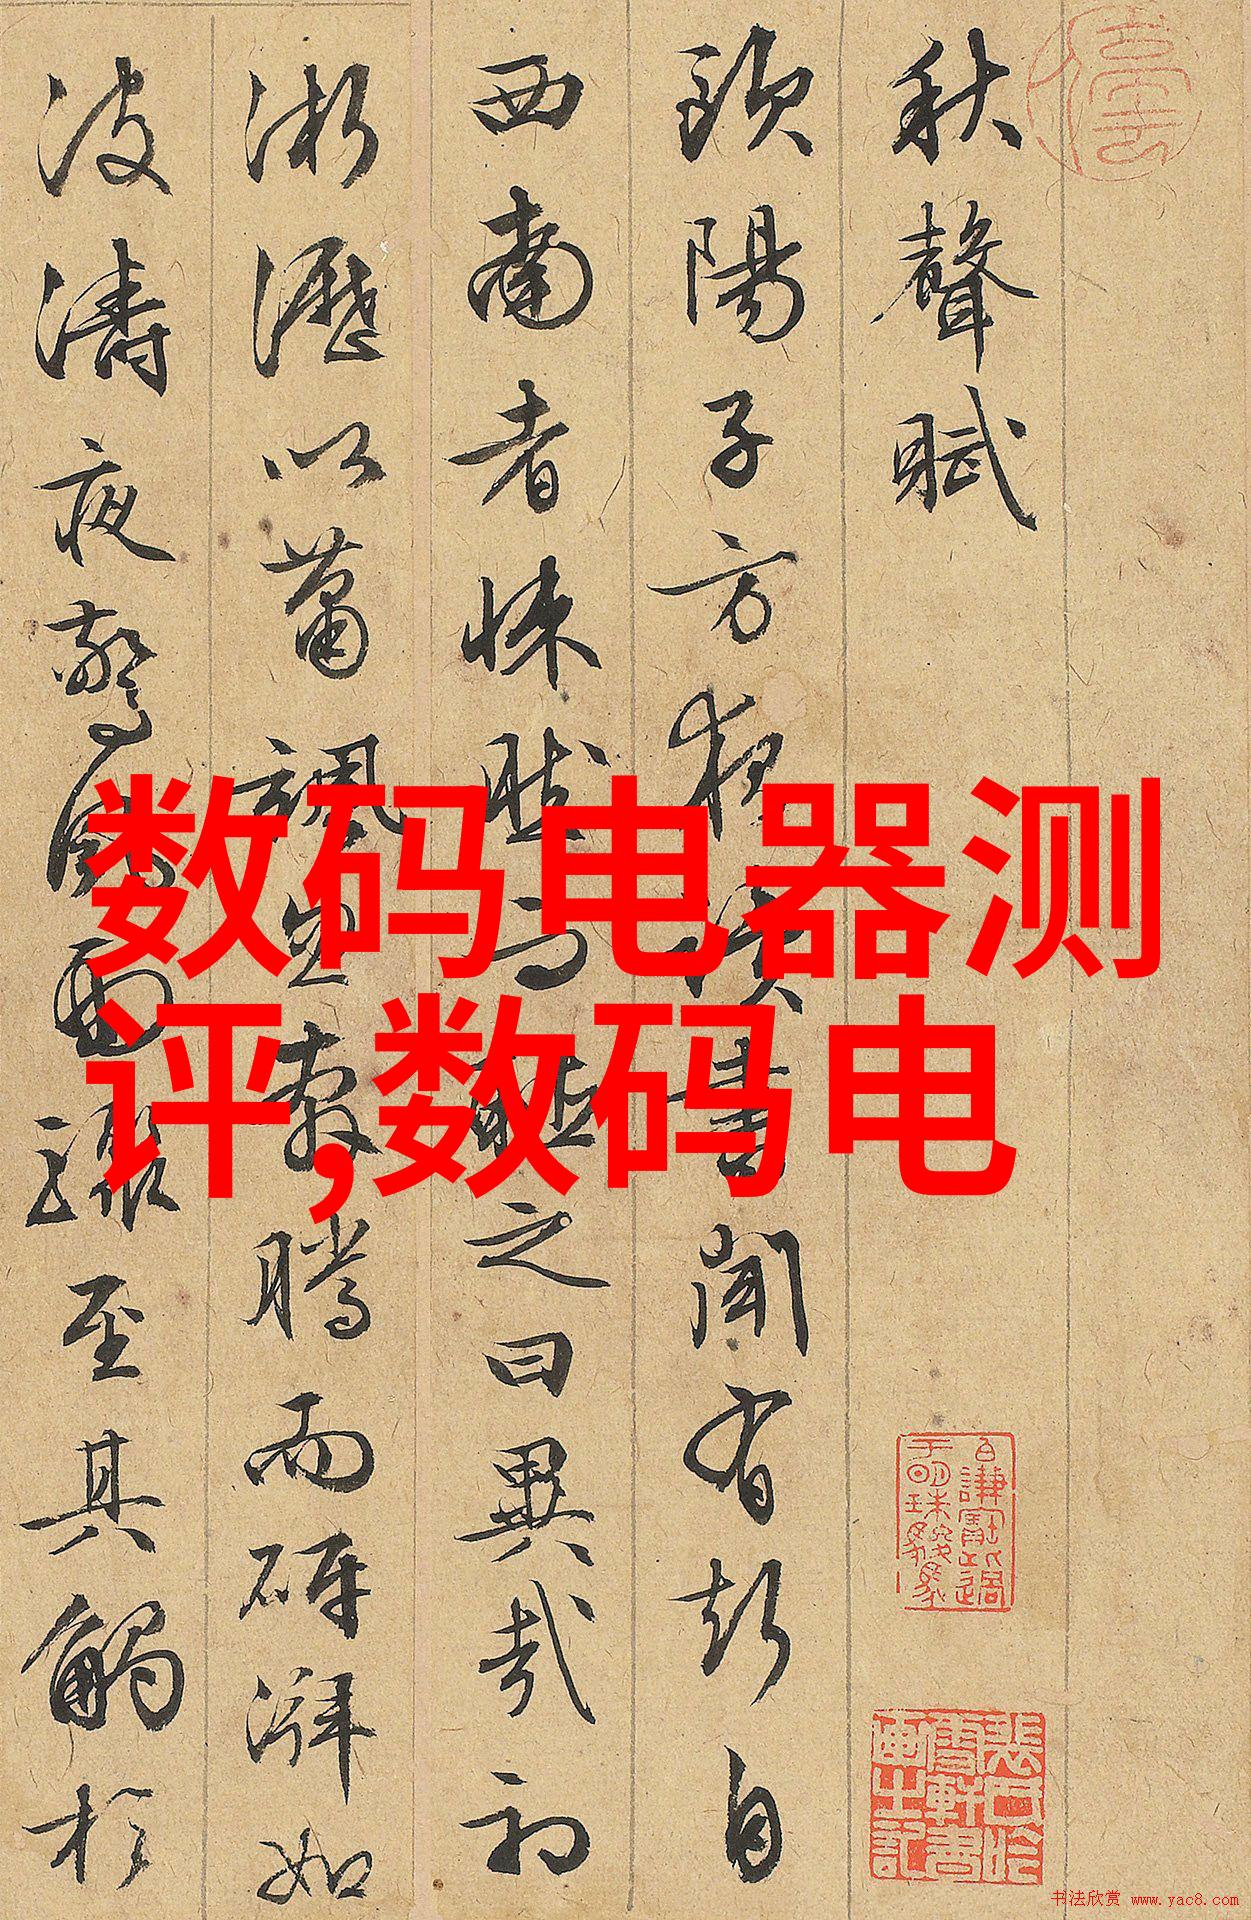 秋聲賦
歐陽子方夜讀書聞有聲自
西南者悚然而聽之曰異哉初
淅瀝以蕭颯忽奔騰而砰湃如
波濤夜驚風雨驟至其觸於
数码电器测
评,数码电
书法欣赏 www.yac8.com